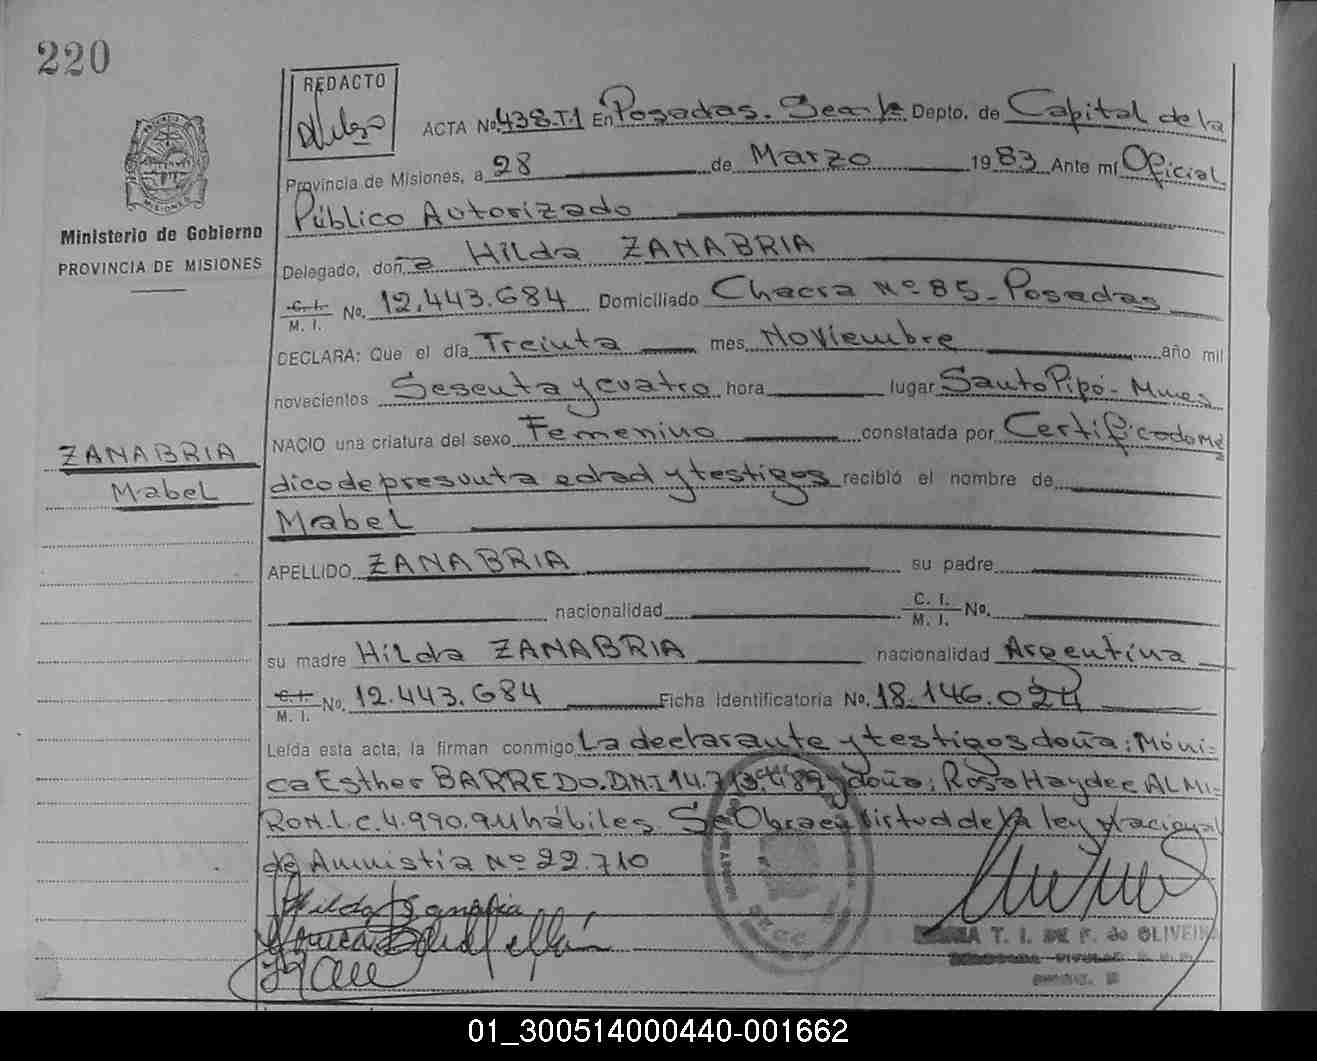 220
REDACTO
ACTA No. 438.T.1 En Posadas. Secc. 1a Depto. de Capital de la
Provincia de Misiones, a 28 de Marzo 1983 Ante mí Oficial
Público Autorizado
Ministerio de Gobierno
PROVINCIA DE MISIONES
Delegado, doña Hilda ZANABRIA
C. I. / M. I. No. 12.443.684 Domiciliado Chacra Nº 85 - Posadas
DECLARA: Que el día Treinta mes Noviembre año mil
novecientos Sesenta y cuatro hora lugar Santo Pipó - Mnes
NACIO una criatura del sexo Femenino constatada por Certificado Mé
ZANABRIA
Mabel
dico de presunta edad y testigos recibió el nombre de
Mabel
APELLIDO ZANABRIA su padre
nacionalidad C. I. / M. I. No.
su madre Hilda ZANABRIA nacionalidad Argentina
C. I. / M. I. No. 12.443.684 Ficha Identificatoria No. 18.146.024
Leída esta acta, la firman conmigo La declarante y testigos doña: Móni-
ca Esther BARREDO. D.N.I 14.713.489 y doña: Rosa Haydee ALMI-
RON. L.C. 4.990.941 hábiles. Se Obra en virtud de la ley Nacional
de Amnistia Nº 22.710
Hilda Zanabria
T. I. DE F. de OLIVEIRA
01_300514000440-001662